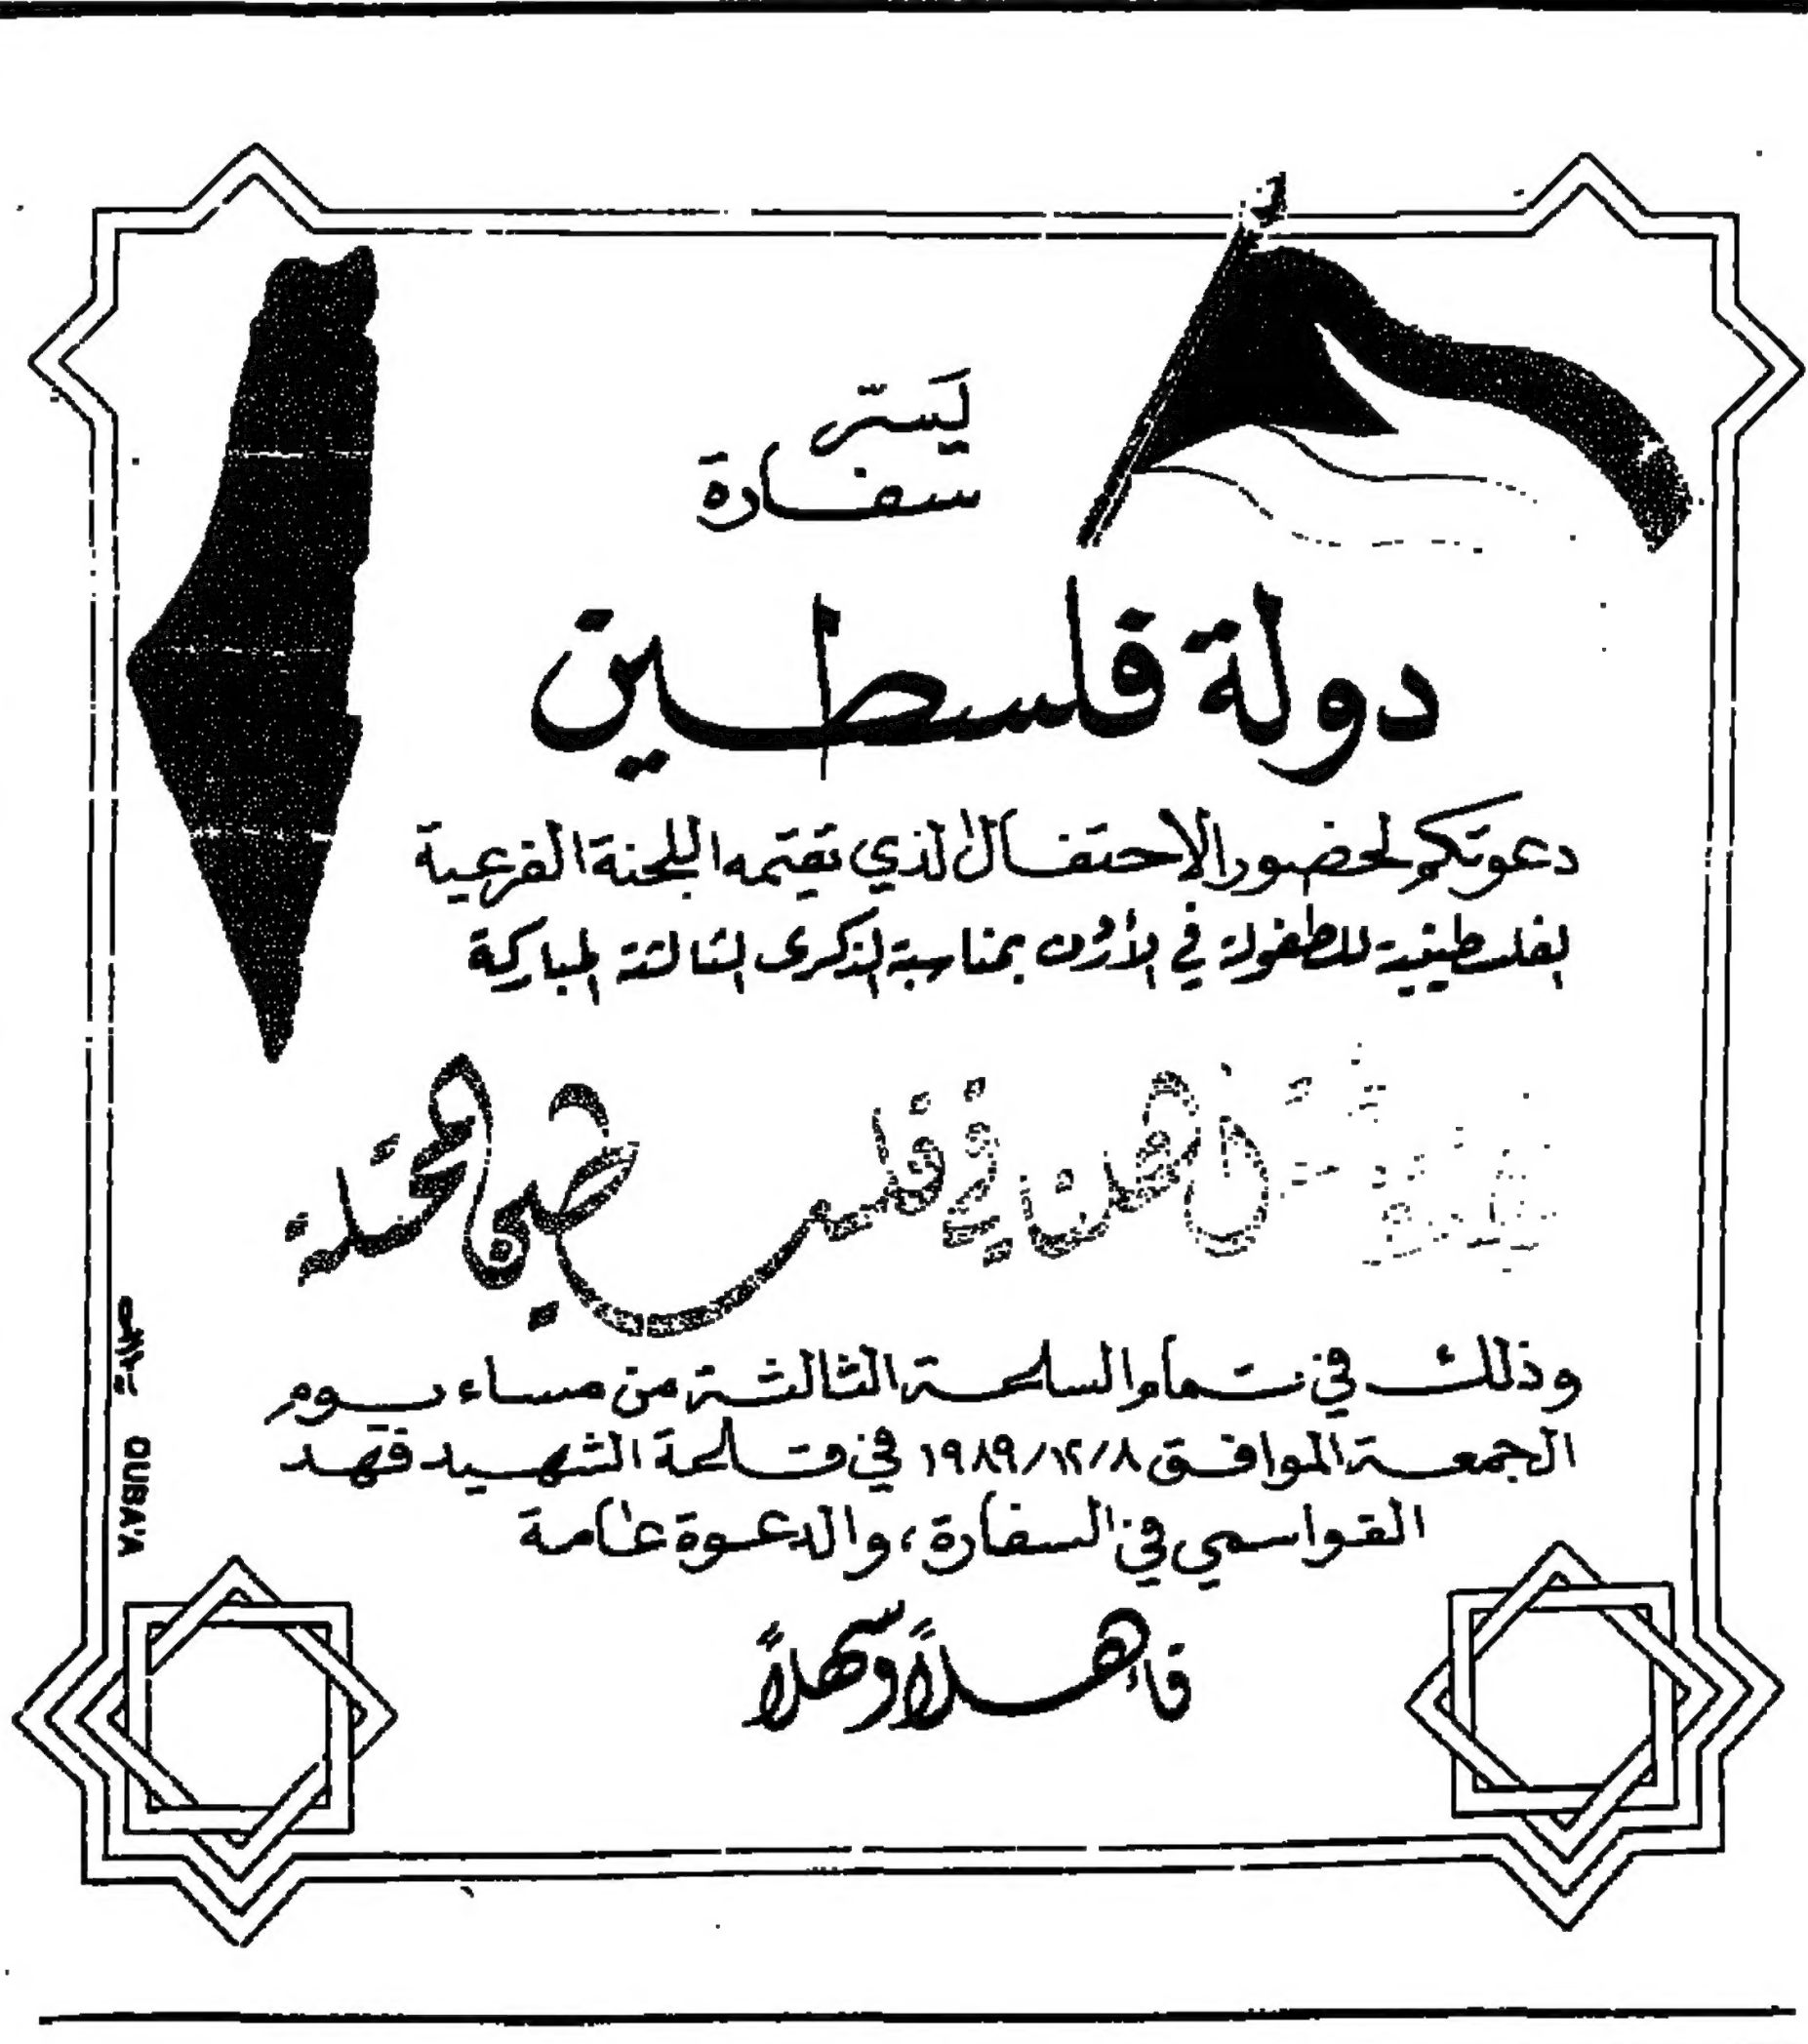 يَسرّ
سفارة
دولة فلسطين
دعوتكم لحضور الاحتفال الذي تقيمه اللجنة الفرعية
الفلسطينية للطفولة في الأردن بمناسبة الذكرى الثالثة المباركة
أهلنا في فلسطين المحتلة
وذلك في تمام الساعة الثالثة من مساء يوم
الجمعة الموافق ١٩٨٩/١٢/٨ في قاعة الشهيد فهد
القواسمي في السفارة، والدعوة عامة
فأهلاً وسهلاً
OUBA'A